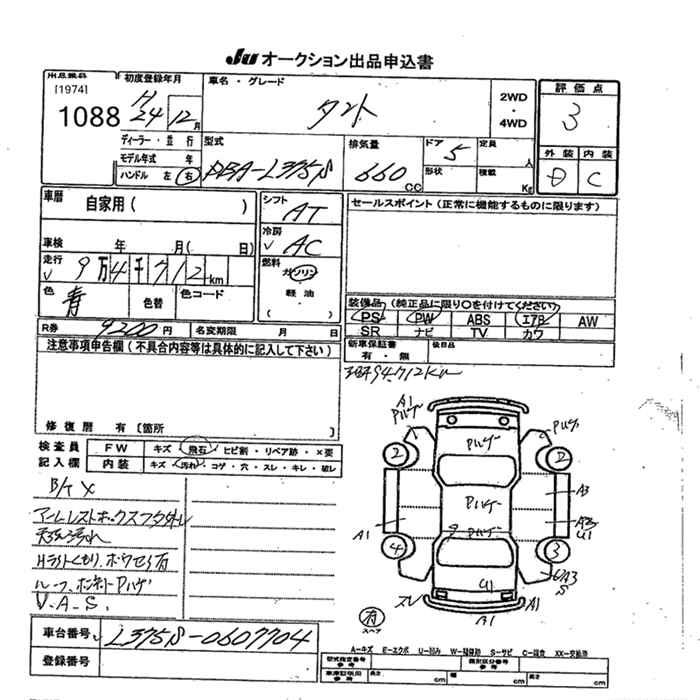 JU オークション出品申込書
初度登録年月
車名・グレード
評価点
[1974]
1088
H 24 12月
タント
2WD
・
4WD
3
ディーラー・並行
モデル年式 年
ハンドル 左 右
型式
DBA-L375S
排気量
660 CC
ドア 5
形状
定員 人
積載 Kg
外装 内装
D C
車歴
自家用( )
シフト
AT
セールスポイント(正常に機能するものに限ります)
車検 年 月( 日)
冷房
AC
走行
9万4千712km
燃料
ガソリン
軽油
( )
色
青
色替
色コード
装備品(純正品に限り○を付けてください)
PS PW ABS エアB AW
SR ナビ TV カワ
R券 9200円
名変期限 月 日
新車保証書
有・無
後日品
注意事項申告欄(不具合内容等は具体的に記入して下さい)
94,712Km
修復歴 有〔箇所 〕
検査員
記入欄
FW キズ・飛石・ヒビ割・リペア跡・×要
内装 キズ・汚れ・コゲ・穴・スレ・キレ・破レ
B/T X
アームレストボックスフタ外レ
天張汚れ
Hライトくもり、
ルーフ、ボンネットPハゲ
V.A.S.
A1
Pハゲ
Pハゲ
Pハゲ
2
2
Pハゲ
A3
Pハゲ
A1
A3
U1
4
3
U1
A3
S
スレ
A1
B1
有
スペア
車台番号 L375S-0607704
登録番号
A-キズ E-エクボ U-凹み W-補修跡 S-サビ C-腐食 XX-交換済
型式指定番号
参考
類別区分番号
参考
長さ cm
cm
cm